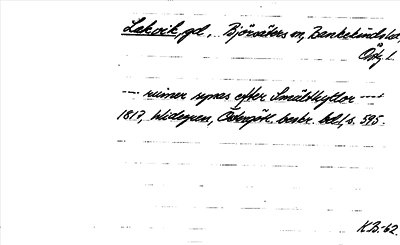 Lakvik gd, Björsäters sn, Bankekinds hd,
Ög. l.
--- ruiner synas efter Smälthyttor ---
1817, Widegren, Östergötl. beskr. bd I, s. 595.
K.B. -62.